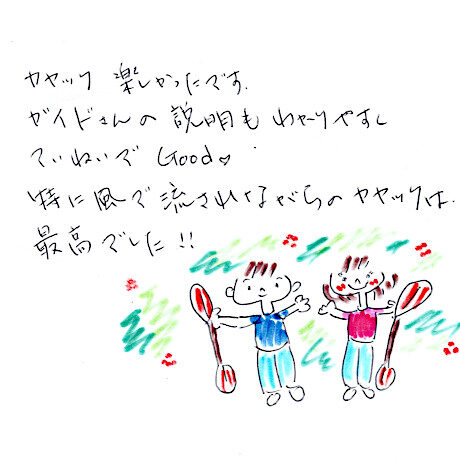 カヤック 楽しかったです.
ガイドさんの 説明も わかりやすし
ていねいで Good♡
特に風で流されながらのカヤックは.
最高でした!!